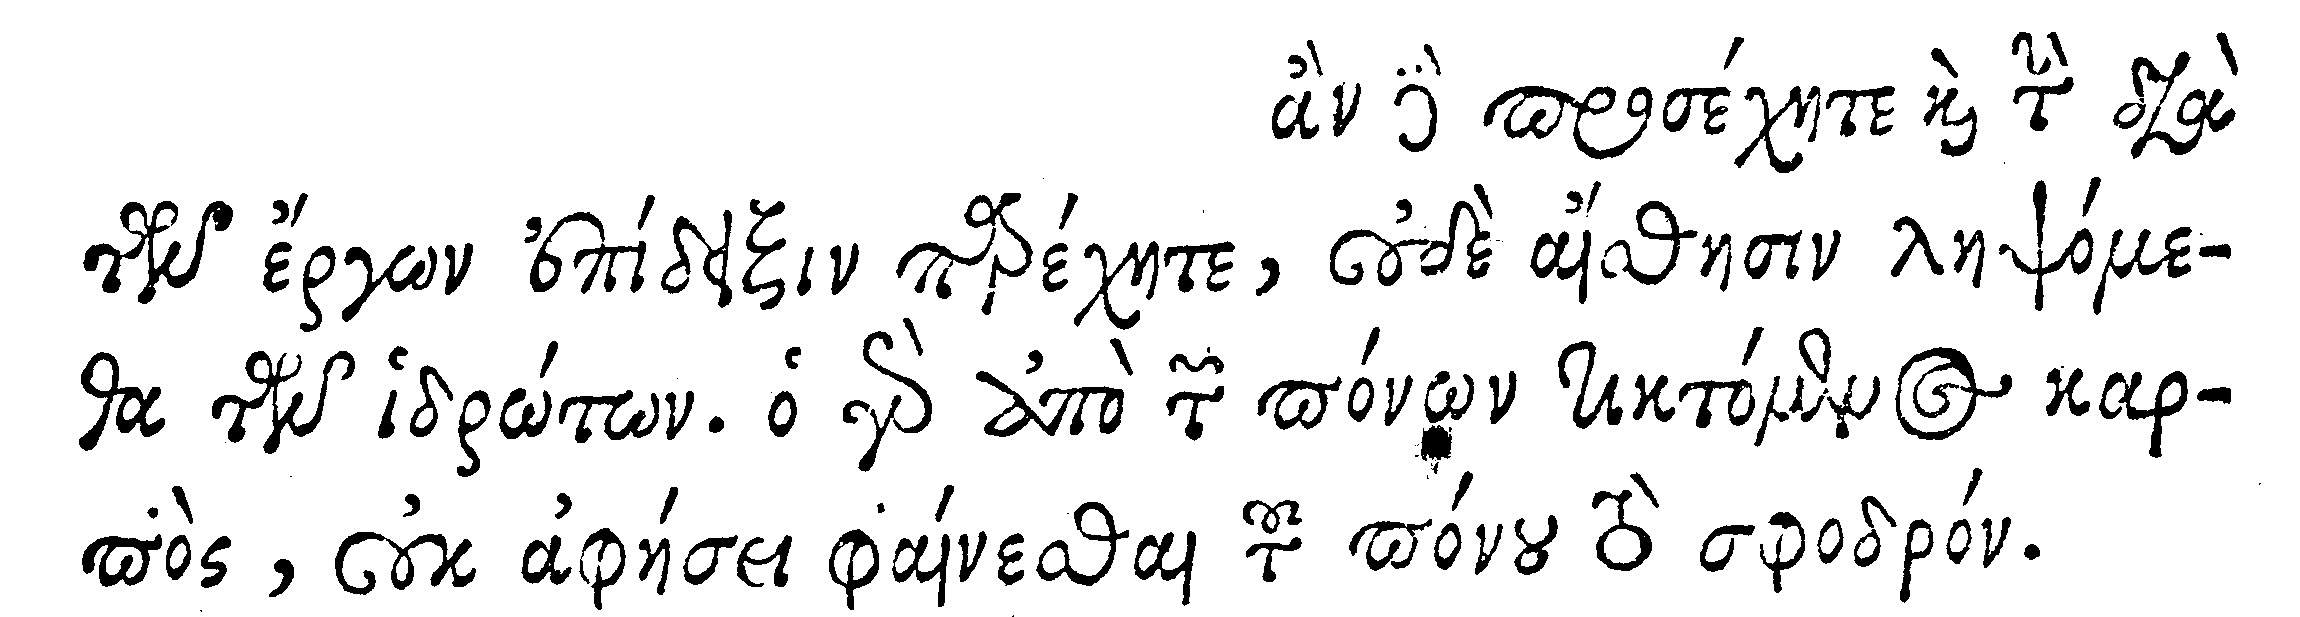 ἂν δὲ προσέχητε καὶ τὴν διὰ
τῶν ἔργων ἐπίδειξιν παρέχητε, οὐδὲ αἴσθησιν ληψόμε-
θα τῶν ἱδρώτων. ὁ γὰρ ἀπὸ τῶν πόνων τικτόμενος καρ-
πὸς, οὐκ ἀφήσει φαίνεσθαι τοῦ πόνου τὸ σφοδρόν.